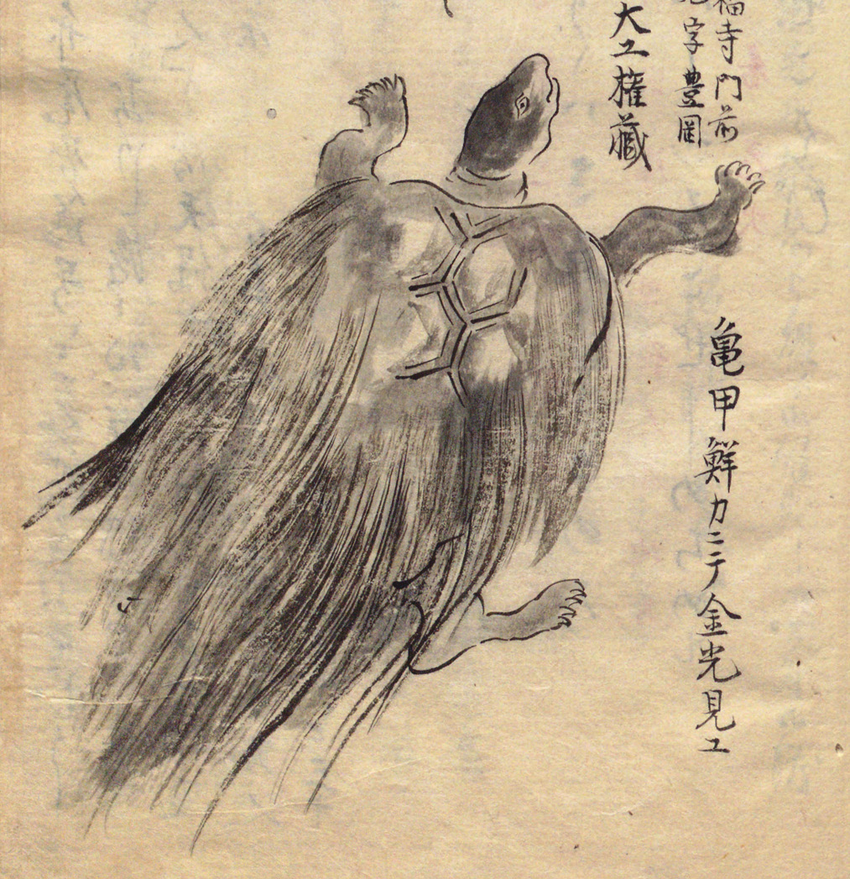 福寺門前
字豊岡
大工権藏
亀甲鮮カニテ金光見エ